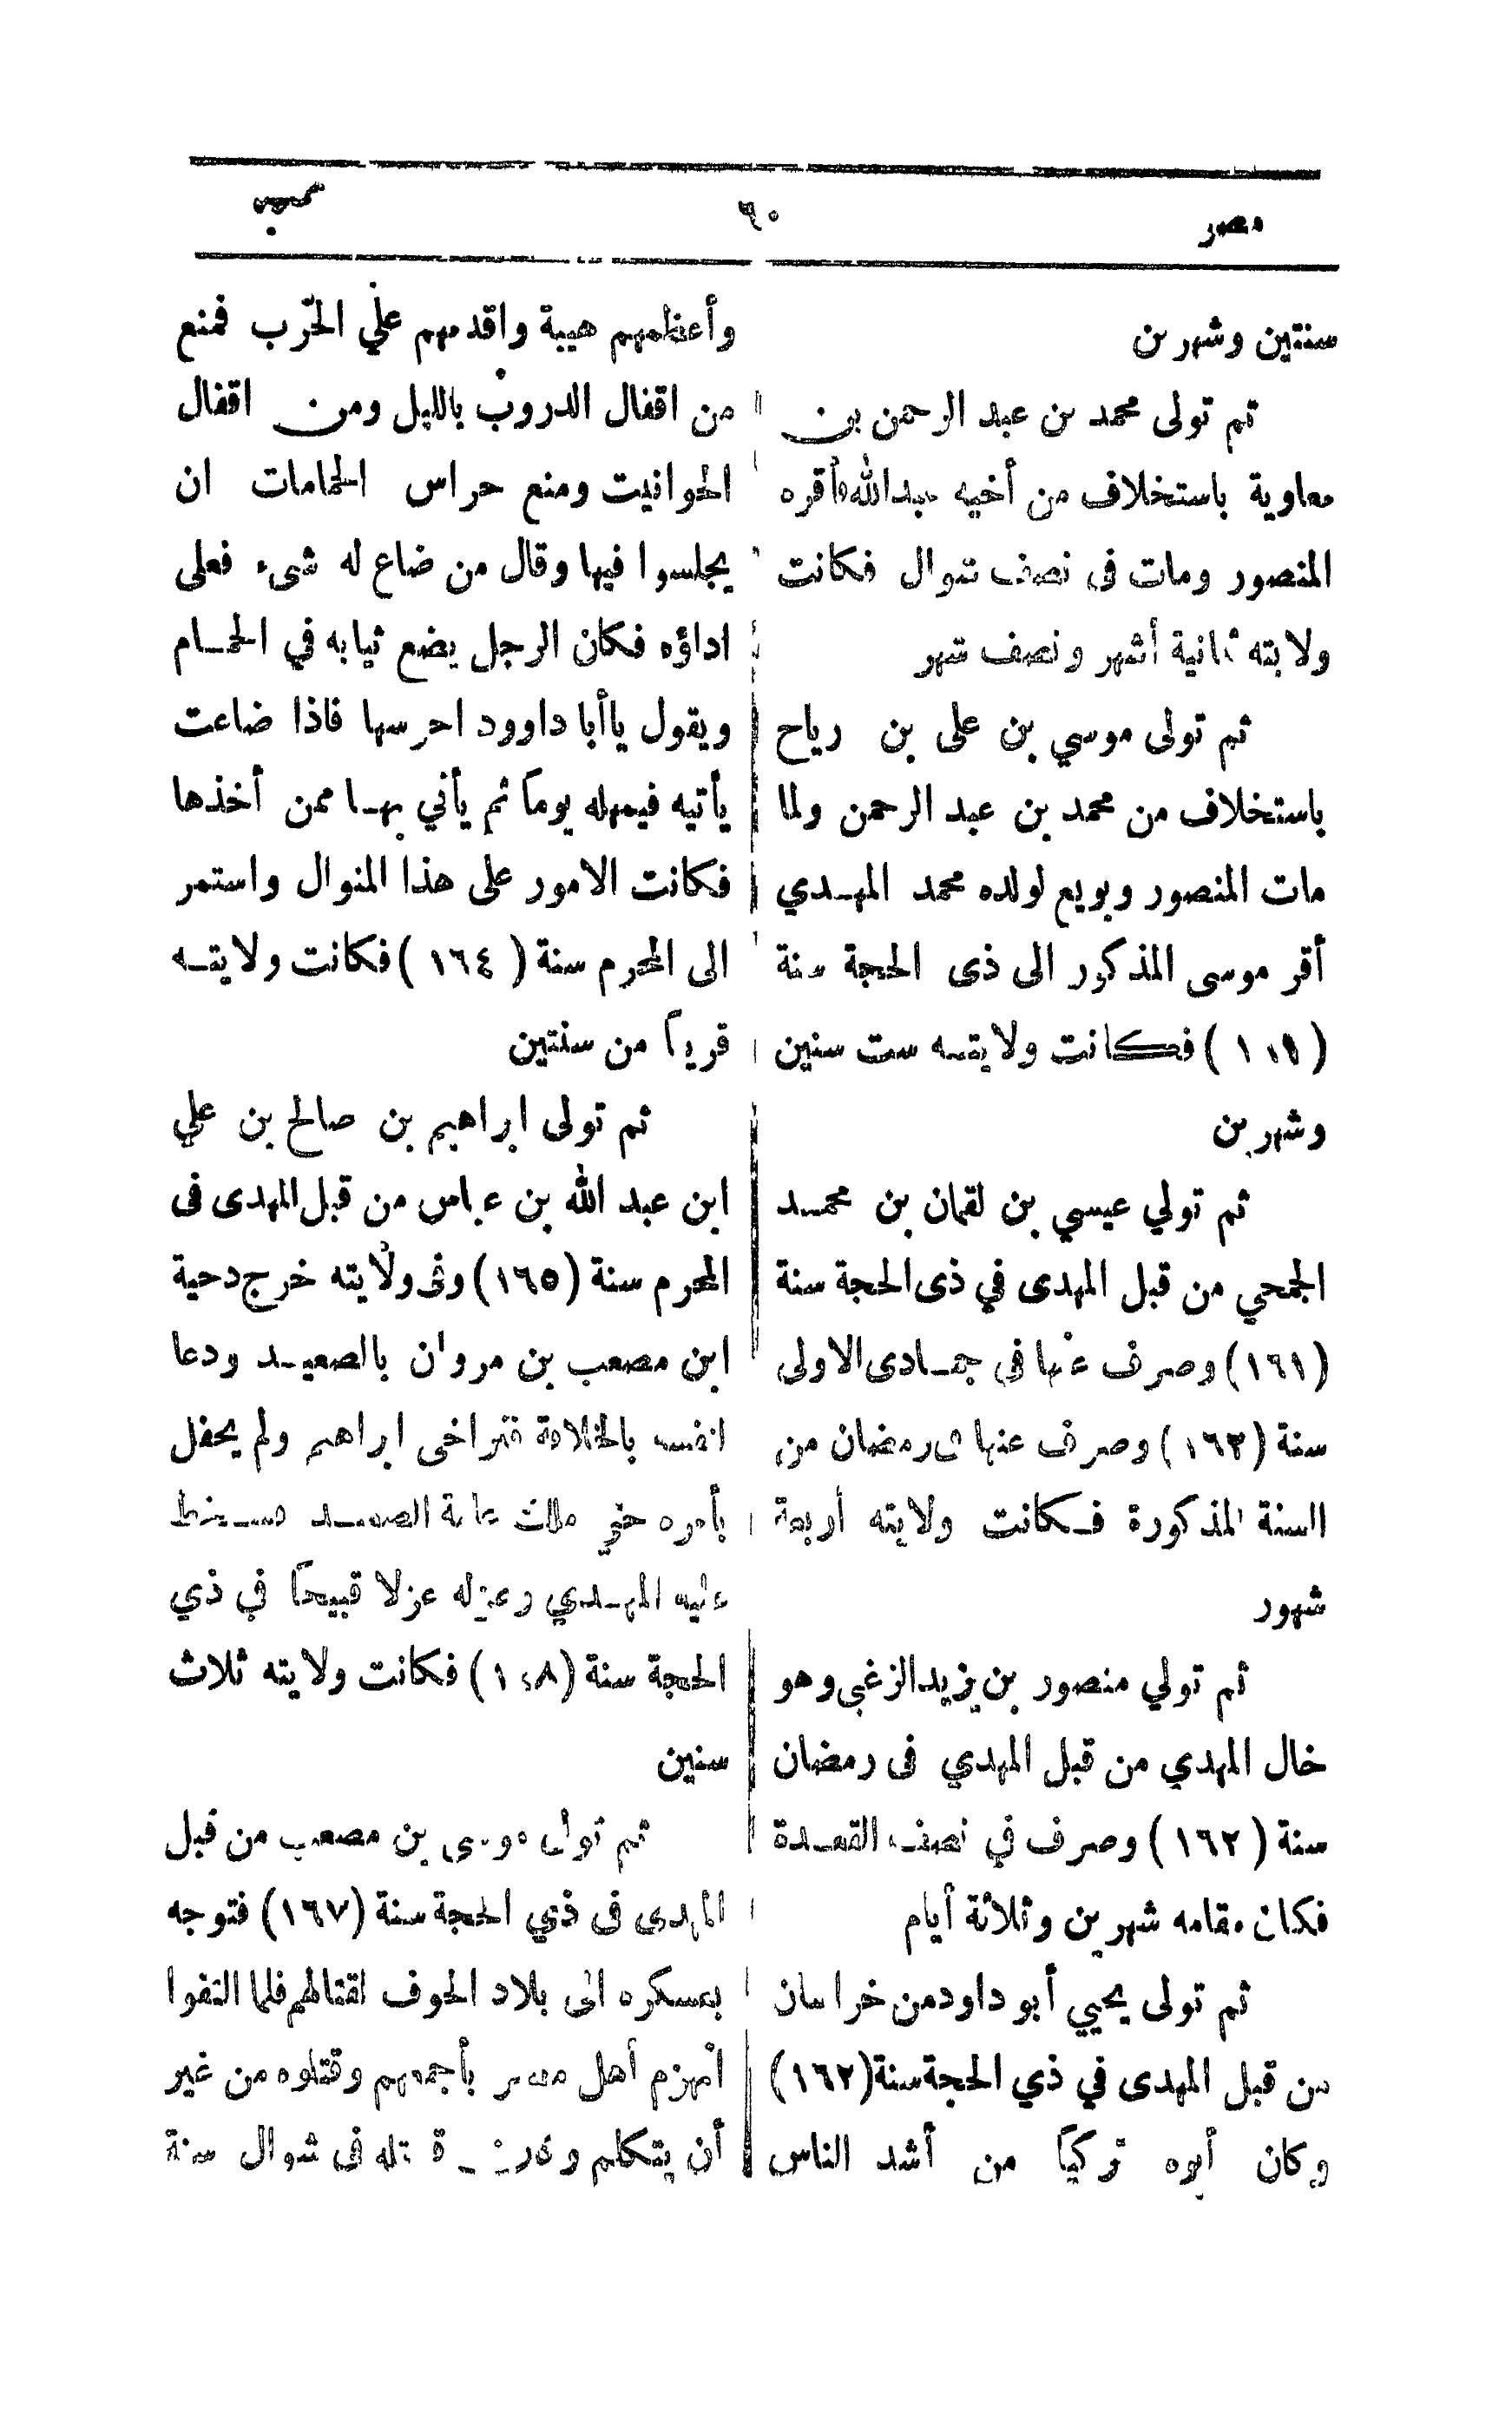 مصر
٦٠
سنتين وشهرين
ثم تولى محمد بن عبد الرحمن بن
معاوية باستخلاف من أخيه عبدالله فأقره
المنصور ومات فى نصف شوال فكانت
ولايته ثمانية أشهر ونصف شهر
ثم تولى موسي بن على بن رياح
باستخلاف من محمد بن عبد الرحمن ولما
مات المنصور وبويع لولده محمد المهدي
أقر موسى المذكور الى ذى الحجة سنة
فكانت ولايته ست سنين
وشهرين
ثم تولي عيسي بن لقمان بن محمد
الجمحي من قبل المهدى في ذى الحجة سنة
(١٦١) وصرف عنها في جمادى الاولى
سنة (١٦٢) وصرف عنها فى رمضان من
السنة المذكورة فكانت ولايته أربعة
شهور
ثم تولي منصور بن يزيد الزغبي وهو
خال المهدي من قبل المهدي فى رمضان
سنة (١٦٢) وصرف في نصف القعدة
فكان مقامه شهرين وثلاثة أيام
ثم تولى يحيي أبو داود من خراسان
من قبل المهدى في ذي الحجة سنة (١٦٢)
وكان أبوه تركياً من أشد الناس
وأعظمهم هيبة واقدمهم علي الحرب فمنع
من اقفال الدروب بالليل ومن اقفال
الحوانيت ومنع حراس الحمامات ان
يجلسوا فيها وقال من ضاع له شىء فعلى
اداؤه فكان الرجل يضع ثيابه في الحمام
ويقول ياأبا داوود احرسها فاذا ضاعت
يأتيه فيمهله يوماً ثم يأتي بها ممن أخذها
فكانت الامور على هذا المنوال واستمر
الى المحرم سنة (١٦٤) فكانت ولايته
قريباً من سنتين
ثم تولى ابراهيم بن صالح بن علي
ابن عبد الله بن عباس من قبل المهدى فى
المحرم سنة (١٦٥) وفى ولايته خرج دحية
ابن مصعب بن مروان بالصعيد ودعا
لنفسه بالخلافة فتراخى ابراهيم ولم يحفل
بأمره حتي ملك عامة الصعيد فسخط
عليه المهدي وعزله عزلا قبيحاً في ذي
الحجة سنة فكانت ولايته ثلاث
سنين
ثم تولى موسى بن مصعب من قبل
المهدى فى ذي الحجة سنة (١٦٧) فتوجه
بعسكره الى بلاد الحوف لقتالهم فلما التقوا
انهزم أهل مصر بأجمعهم وقتلوه من غير
أن يتكلم قتله فى شوال سنة